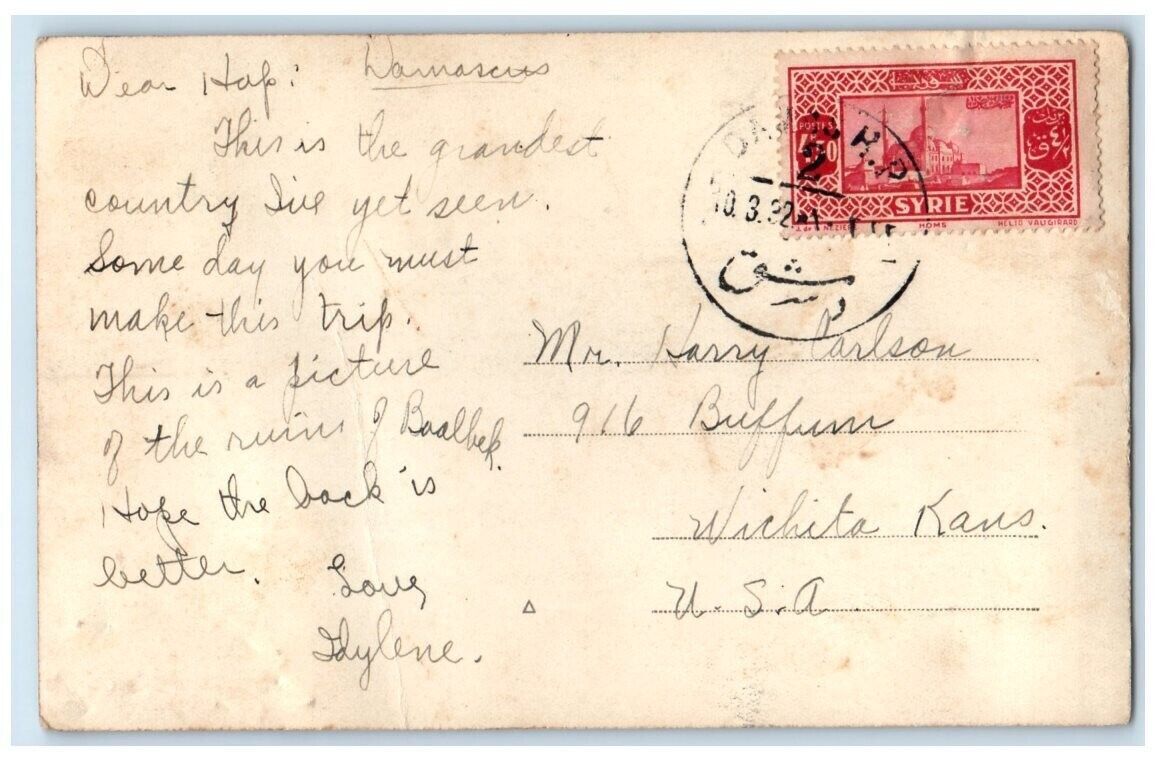 Dear Hap: Damascus
This is the grandest
country I've yet seen.
Some day you must
make this trip.
This is a picture
of the ruins of Baalbek.
Hope the back is
better.
Love,
Idylene.
سوريا
POSTES
SYRIE
HOMS
HELIO VAUGIRARD
2
10.3.32
دمشق
Mr. Harry Carlson
916 Buffum
Wichita Kans.
U.S.A.